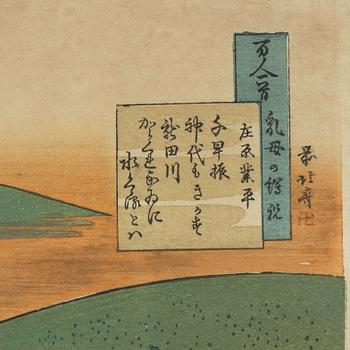 前北斎卍
百人一首 乳母か繪説
在原業平
千早振
神代もきかす
龍田川
からくれなゐに
水くゝるとハ